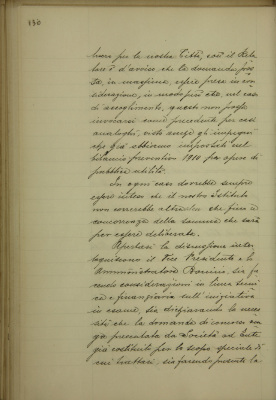 136
luore per la nostra Città, così il Rela
tore è d'avviso che la domanda pos
sa, in massima, essere presa in con
siderazione, in modo però che, nel caso
di accoglimento, questo non possa
invocarsi come precedente per casi
analoghi, visto anche gli impegni
che già abbiamo impostati nel
bilancio preventivo 1910 per opere di
pubblica utilità.
In ogni caso dovrebbe sempre
essere inteso che il nostro Istituto
non concorrebbe altro che fino a
concorrenza della somma che sarà
per essere deliberata.
Apertasi la discussione inter
loquiscono il Vice Presidente e l'
Amministratore sia fa
cendo considerazioni in linea tecni
ca e finanziaria sull'iniziativa
in esame, sia dichiarando la neces
sità che la domanda di concorso ven
ga presentata da Società od Ente
già costituito per lo scopo speciale di
cui trattasi, sia facendo presente la